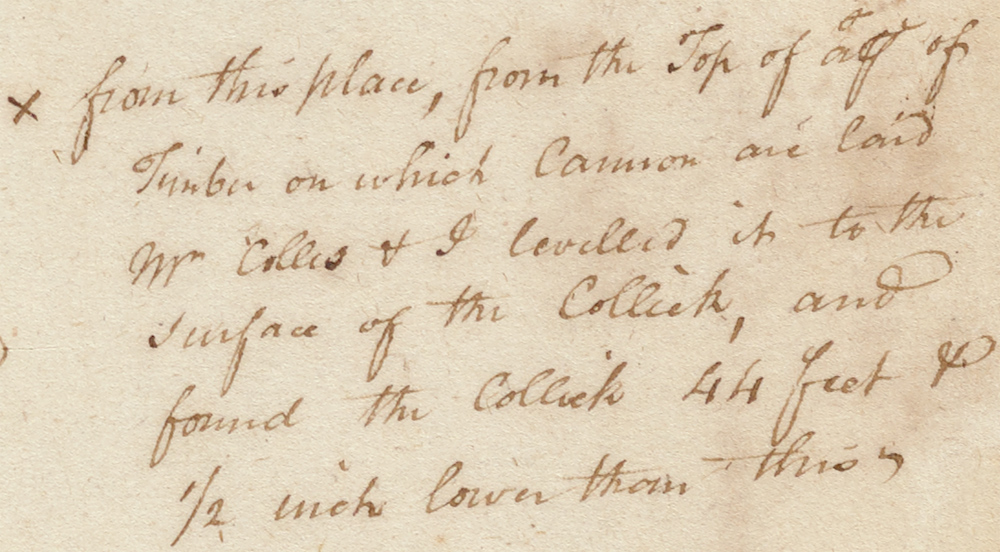 x from this place, from the Top of a ps of
Timber on which Cannon are laid
Mr Colles & I levelled it to the
surface of the Collick, and
found the Collick 44 feet &
1/2 inch lower than this